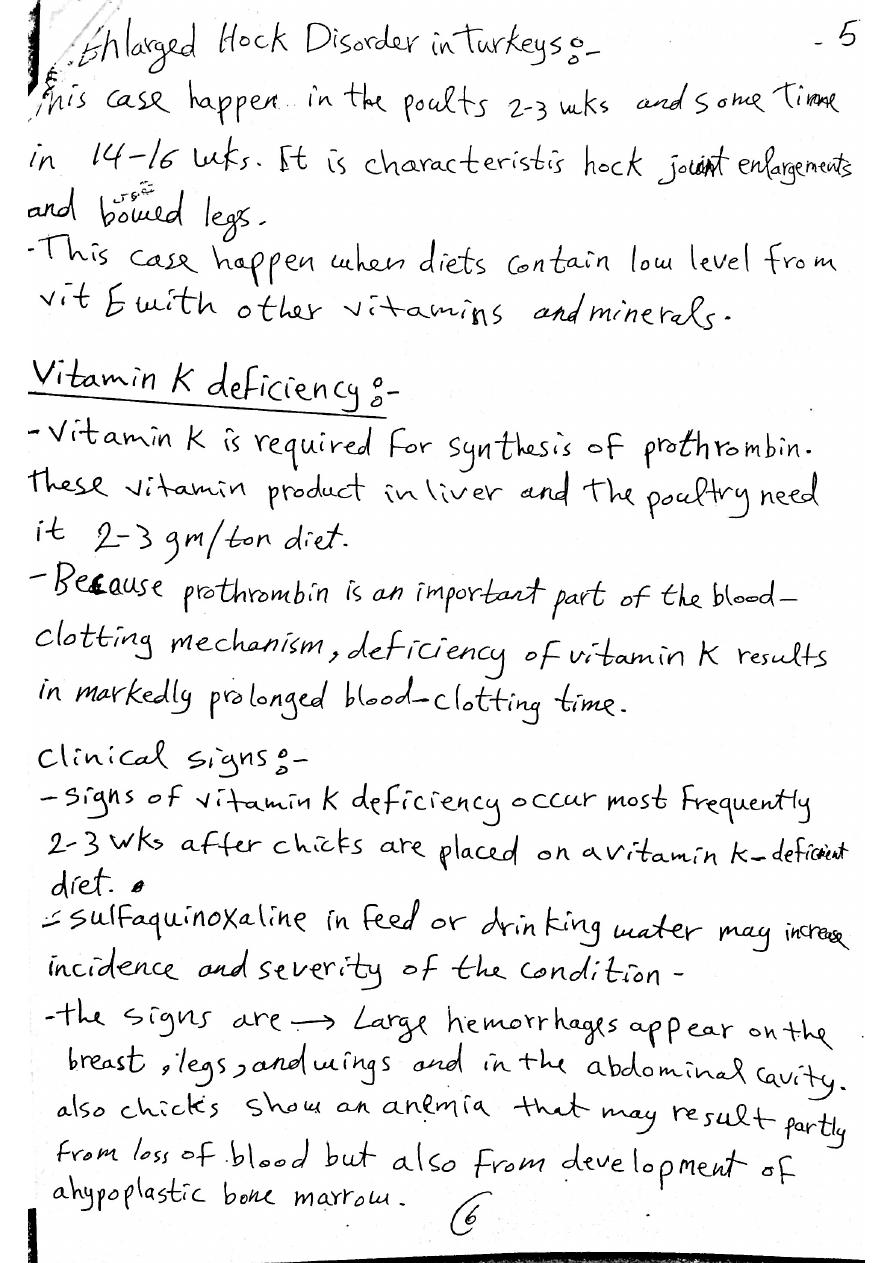 Enlarged Hock Disorder in Turkeys:-
- 5
This case happen in the poults 2-3 wks and some time
in 14-16 wks. It is characteristis hock joint enlargements
and bowed legs.
-This case happen when diets contain low level from
vit E with other vitamins and minerals.
Vitamin K deficiency:-
-Vitamin K is required for synthesis of prothrombin.
these vitamin product in liver and the poultry need
it 2-3 gm/ton diet.
-Because prothrombin is an important part of the blood-
clotting mechanism, deficiency of vitamin K results
in markedly prolonged blood-clotting time.
Clinical signs:-
-Signs of vitamin K deficiency occur most frequently
2-3 wks after chicks are placed on a vitamin K-deficient
diet.
- Sulfaquinoxaline in feed or drinking water may increase
incidence and severity of the condition -
-the signs are → Large hemorrhages appear on the
breast, legs, and wings and in the abdominal cavity.
also chicks show an anemia that may result partly
from loss of blood but also from development of
a hypoplastic bone marrow.
6